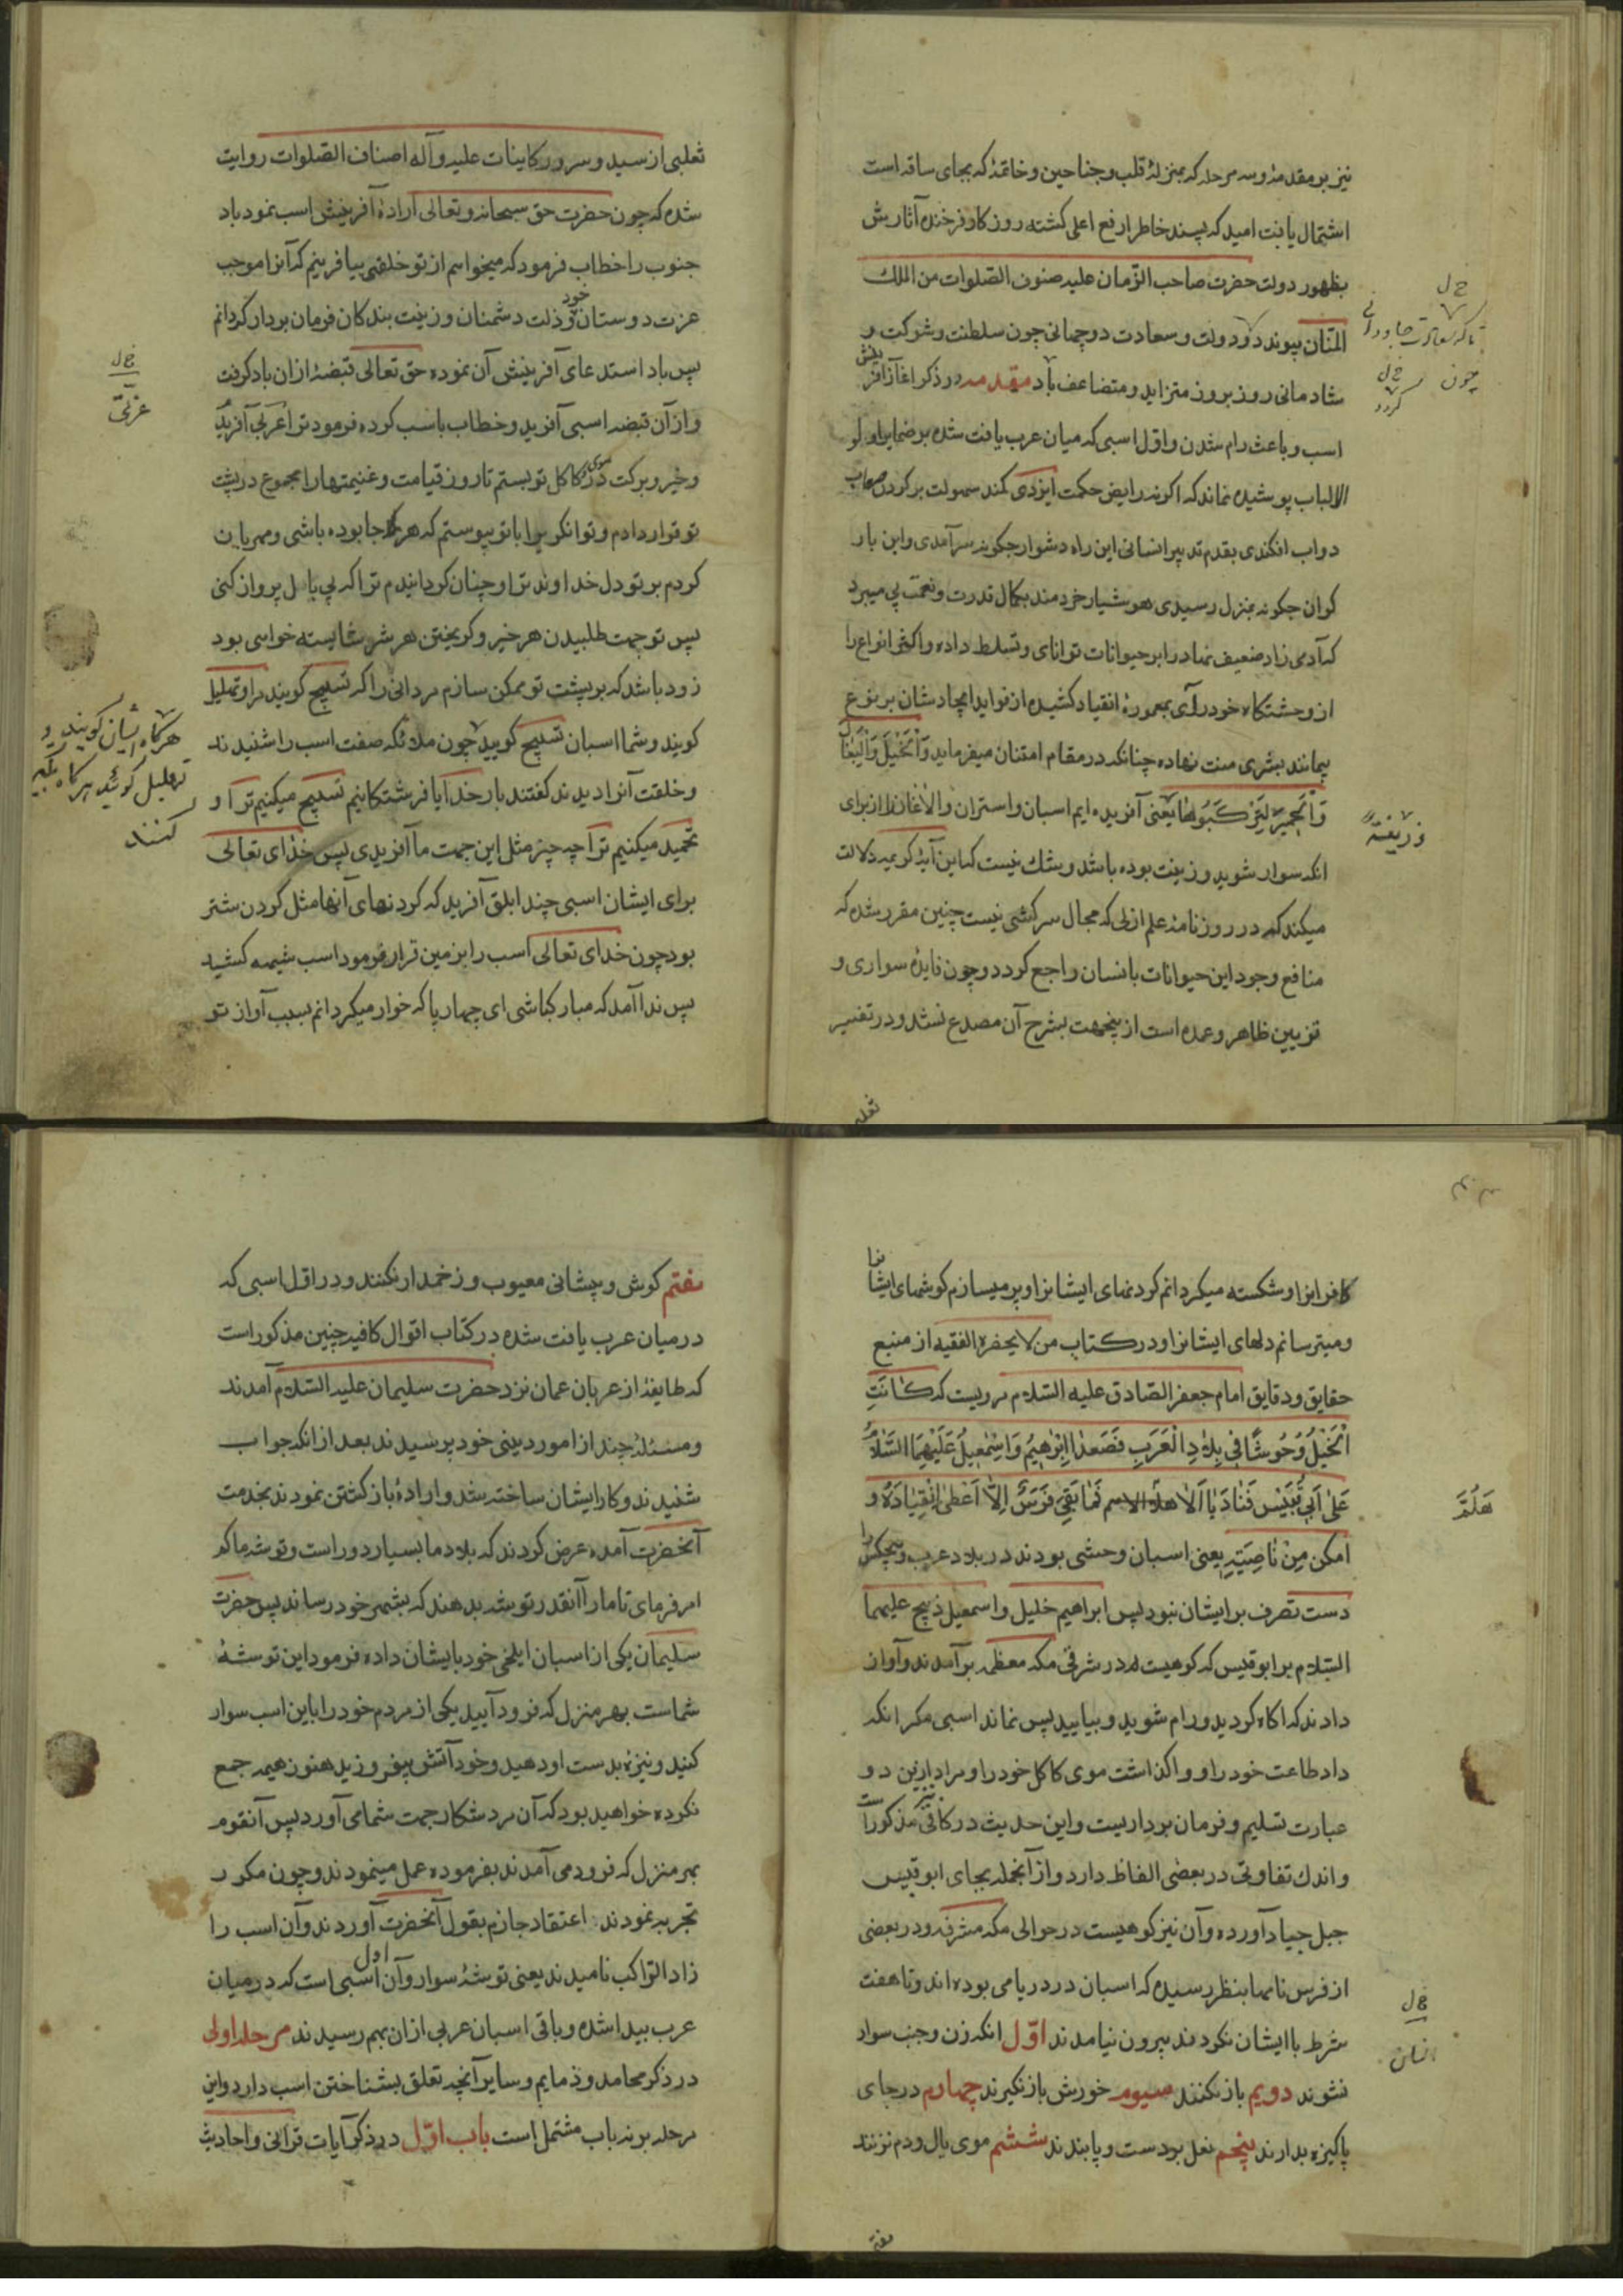 نیز بر مقدمهٔ و سه مرحله که بمنزلهٔ قلب و جناحین و خاتمهٔ که بجای ساقه است
اشتمال یافت امید که پسند خاطر ارفع اعلی کشته روزکار فرخنده آثارش
بظهور دولت حضرت صاحب الزمان علیه صنوف الصلوات من الملك
المنان پیوندد و دولت و سعادت دو جهانی چون سلطنت و شوکت و
شادمانی روز بروز متزاید و متضاعف باد مقدمه در ذکر اغاز آفرینش
اسب و باعث رام شدن و اول اسبی که میان عرب یافت شده بر ضمایر اولو
الالباب پوشیده نماند که اکر نه رایض حکمت ایزدی کمند سهولت بر کردن صعاب
دواب افکندی بقدم تدبیر انسانی این راه دشوار چکونه سر آمدی و این بار
کران چکونه بمنزل رسیدی هوشیار خردمند بکمال قدرت و نعمت پی میبرد
که آدمی زاد ضعیف نهاد را بر حیوانات توانای و تسلط داده و اکثر انواع را
از وحشتکاه خودرآی بمعمورهٔ انقیاد کشیده از فواید ایجادشان بر نوع
بیمانند بشری منت نهاده چنانکه در مقام امتنان میفرماید وَاَلْخَيْلَ وَالْبِغَالَ
وَالْحَمِيرَ لِتَرْكَبُوهَا یعنی آفریده ایم اسبان و استران و الاغان را از برای
انکه سوار شوید و زینت بوده باشد و شك نیست که این آیهٔ کریمه دلالت
میکند که در روزنامهٔ علم ازلی که مجال سرکشی نیست چنین مقرر شده که
منافع وجود این حیوانات بانسان راجع کردد و چون فایدهٔ سواری و
تزیین ظاهر و عمده است از ینجهت بشرح آن مصدع نشد و در تفسیر
خ ل
خ ل
چون
کردد
وَزِینَةً
ثعلبی
ثعلبی از سید و سرور کاینات علیه و آله اصناف الصلوات روایت
شده که چون حضرت حق سبحانه و تعالی ارادهٔ آفرینش اسب نمود باد
جنوب را خطاب فرمود که میخواهم از تو خلقی بیافرینم که آنرا موجب
عزت دوستان خود و ذلت دشمنان و زینت بندکان فرمان بردار کردانم
پس باد استدعای آفرینش آن نموده حق تعالی قبضهٔ ازان باد کرفت
و از آن قبضه اسبی آفرید و خطاب باسب کرده فرمود ترا عربی آفریدم
و خیر و برکت در موی کاکل تو بستم تا روز قیامت و غنیمتها را مجموع در پشت
تو قرار دادم و توانکریرا با تو پیوستم که هر کجا بوده باشی و مهربان
کردم بر تو دل خداوند ترا و چنان کردانیدم ترا که بی بال پرواز کنی
پس تو جهت طلبیدن هر خیر و کریختن هر شر شایسته خواهی بود
زود باشد که بر پشت تو ممکن سازم مردانی را که تسبیح کویند مرا و تهلیل
کویند و شما اسبان تسبیح کویید چون ملائکه صفت اسب را شنیدند
و خلقت آنرا دیدند کفتند بار خدایا فرشتکانیم تسبیح میکنیم ترا و
تحمید میکنیم ترا چه چیز مثل این جهت ما آفریدی پس خدای تعالی
برای ایشان اسبی چند ابلق آفرید که کردنهای آنها مثل کردن شتر
بود چون خدای تعالی اسب را بزمین قرار فرمود اسب شیهه کشید
پس ندا آمد که مبارکباشی ای چهارپا که خوار میکردانم بسبب آواز تو
خ ل
عزتی
هرکاه ایشان کویند و
تهلیل کوئید هرکاه تکبیر
کنند
کافرانرا و شکسته میکردانم کردنهای ایشانرا و پر میسازم کوشهای ایشانرا
و میترسانم دلهای ایشانرا و در کتاب من لا یحضره الفقیه از منبع
حقایق و دقایق امام جعفر الصادق علیه السلام مرویست که کَانَتِ
الْخَيْلُ وُحُوشًا فِي بِلَادِ الْعَرَبِ فَصَعِدَ اِبْرٰهِيمُ وَاِسْمٰعِيلُ عَلَيْهِمَا السَّلَامُ
عَلٰى اَبِي قُبَيْسٍ فَنَادَيَا اَلَا هَلَّا الاسم فَمَا بَقِيَ فَرَسٌ اِلَّا اَعْطٰى اِنْقِيَادَهُ وَ
اَمْكَنَ مِنْ نَاصِيَتِهِ یعنی اسبان وحشی بودند در بلاد عرب و هیچکس را
دست تصرف بر ایشان نبود پس ابراهیم خلیل و اسمعیل ذبیح علیهما
السلام بر ابو قبیس که کوهیست در شرقی مکه معظمه بر آمدند و آواز
دادند که اکاه کردید و رام شوید و بیایید پس نماند اسبی مکر انکه
داد طاعت خود را و واکذاشت موی کاکل خود را و مراد ازین دو
عبارت تسلیم و فرمان برداریست و این حدیث در کافی نیز مذکور است
و اندك تفاوتی در بعضی الفاظ دارد و از آنجمله بجای ابو قبیس
جبل جیاد آورده و آن نیز کوهیست در حوالی مکه مشرفه و در بعضی
از فرس نامها بنظر رسیده که اسبان در دریا می بوده اند و تا هفت
شرط با ایشان نکردند بیرون نیامدند اوّل انکه زن و جنب سوار
نشوند دویم باز نکنند سیوم خورش باز نکیرند چهارم در جای
پاکیزه بدارند پنجم نعل بر دست و پا بندند ششم موی یال و دم نزنند
هَلُمَّ
خ ل
هفتم
هفتم کوش و پیشانی معیوب و زخمدار نکنند و در اوّل اسبی که
در میان عرب یافت شده در کتاب اقوال کافیه چنین مذکور است
که طایفهٔ از عربان عمان نزد حضرت سلیمان علیه السلام آمدند
و مسئلهٔ چند از امور دینی خود پرسیدند بعد از انکه جواب
شنیدند و کار ایشان ساخته شد و ارادهٔ باز کشتن نمودند بخدمت
آنحضرت آمده عرض کردند که بلاد ما بسیار دور است و توشه ما کم
امر فرمای تا ما را آنقدر توشه بدهند که بشهر خود رساند پس حضرت
سلیمان یکی از اسبان ایلخی خود بایشان داده فرمود این توشهٔ
شماست بهر منزل که فرود آیید یکی از مردم خود را باین اسب سوار
کنید و نیزهٔ بدست او دهید و خود آتش بیفروزید هنوز هیمه جمع
نکرده خواهید بود که آن مرد شکار جهت شما می آورد پس آنقوم
بهر منزل که فرود می آمدند بفرموده عمل مینمودند و چون مکرر
تجربه نمودند اعتقاد جازم بقول آنحضرت آوردند و آن اسب را
زاد الراکب نامیدند یعنی توشهٔ سوار و آن اول اسبی است که در میان
عرب پیدا شده و باقی اسبان عربی ازان بهم رسیدند مرحله اولی
در ذکر محامد و ذمایم و سایر آنچه تعلق بشناختن اسب دارد و این
مرحله بر نه باب مشتمل است باب اوّل در ذکر آیات قرانی و احادیث